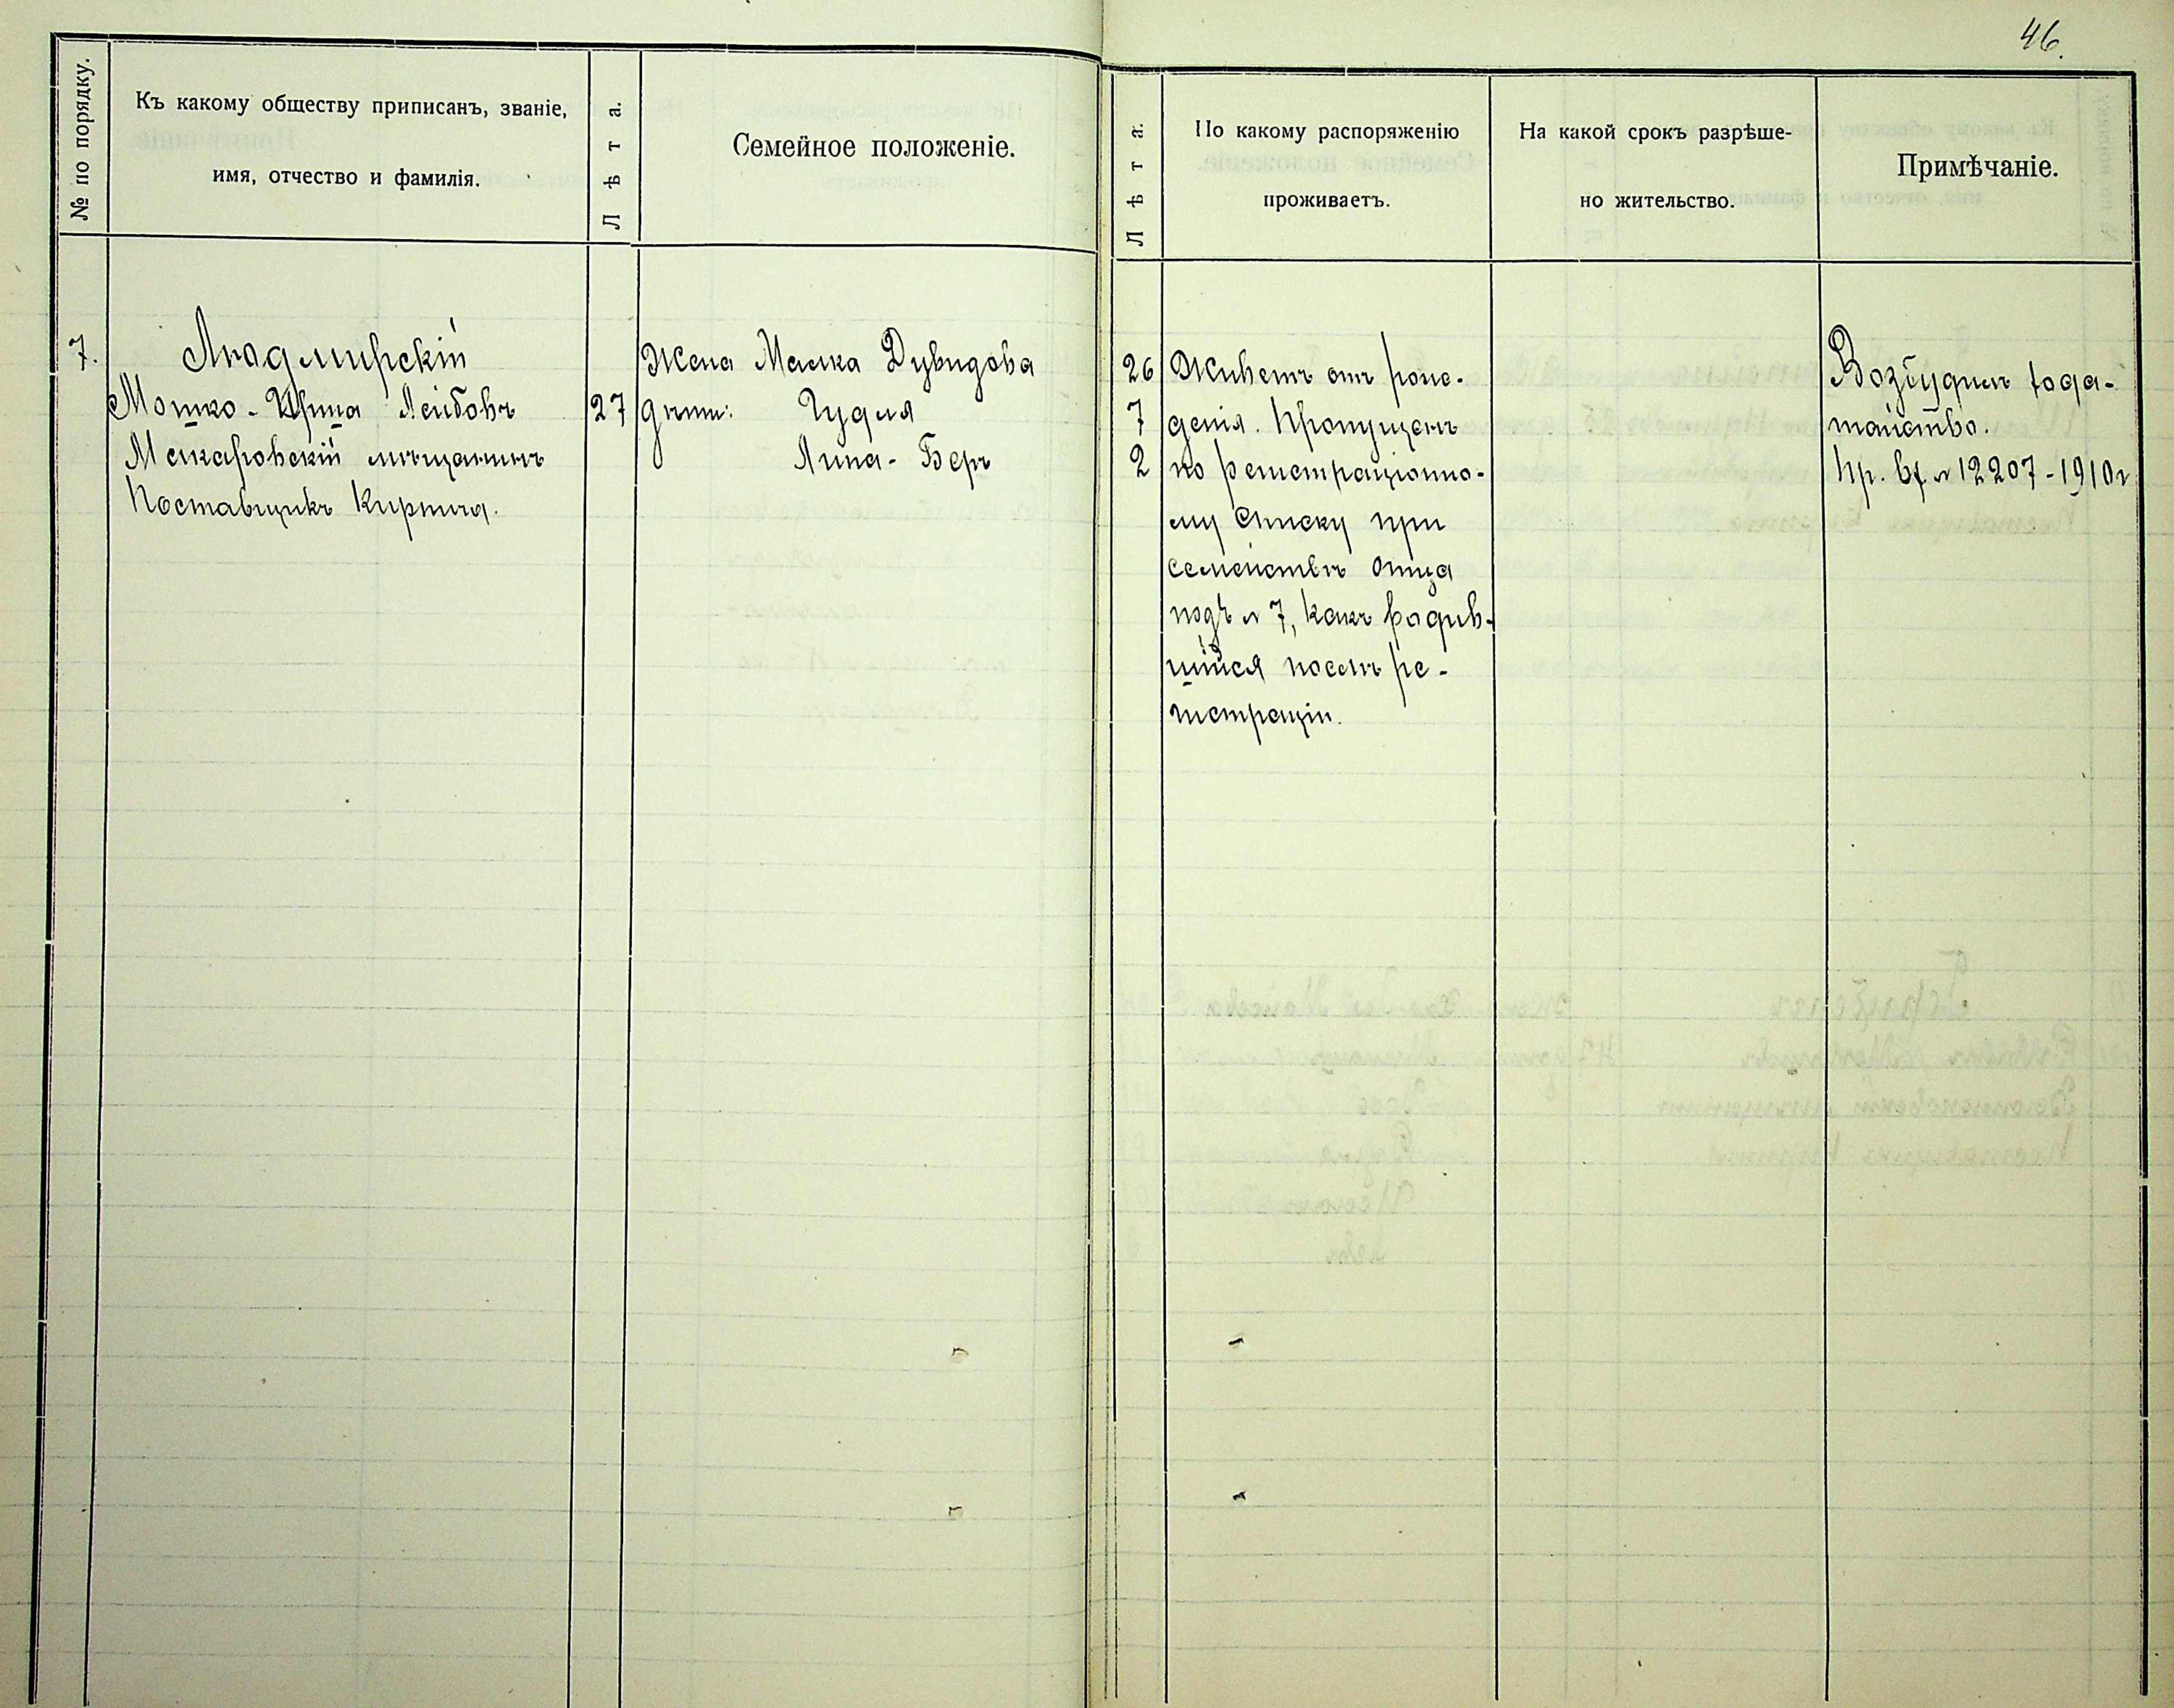 46.
№ по порядку.
Къ какому обществу приписанъ, званіе,
имя, отчество и фамилія.
Лѣта.
Семейное положеніе.
Лѣта.
По какому распоряженію
проживаетъ.
На какой срокъ разрѣше-
но жительство.
Примѣчаніе.
7.
Людмирскій
Мошко-Ицина Лейбовъ
Макаровскій мѣщанинъ
Поставщикъ Кирпича.
27
Жена Малка Дувидова
дѣти: Гудля
Липа-Беръ
26
7
2
Живетъ отъ рож-
денія. Пропущенъ
по регистраціонно-
му списку при
семействѣ отца
подъ № 7, какъ родив-
шійся послѣ ре-
гистраціи.
Возбудилъ хода-
тайство.
Пр. вх № 12207-1910г